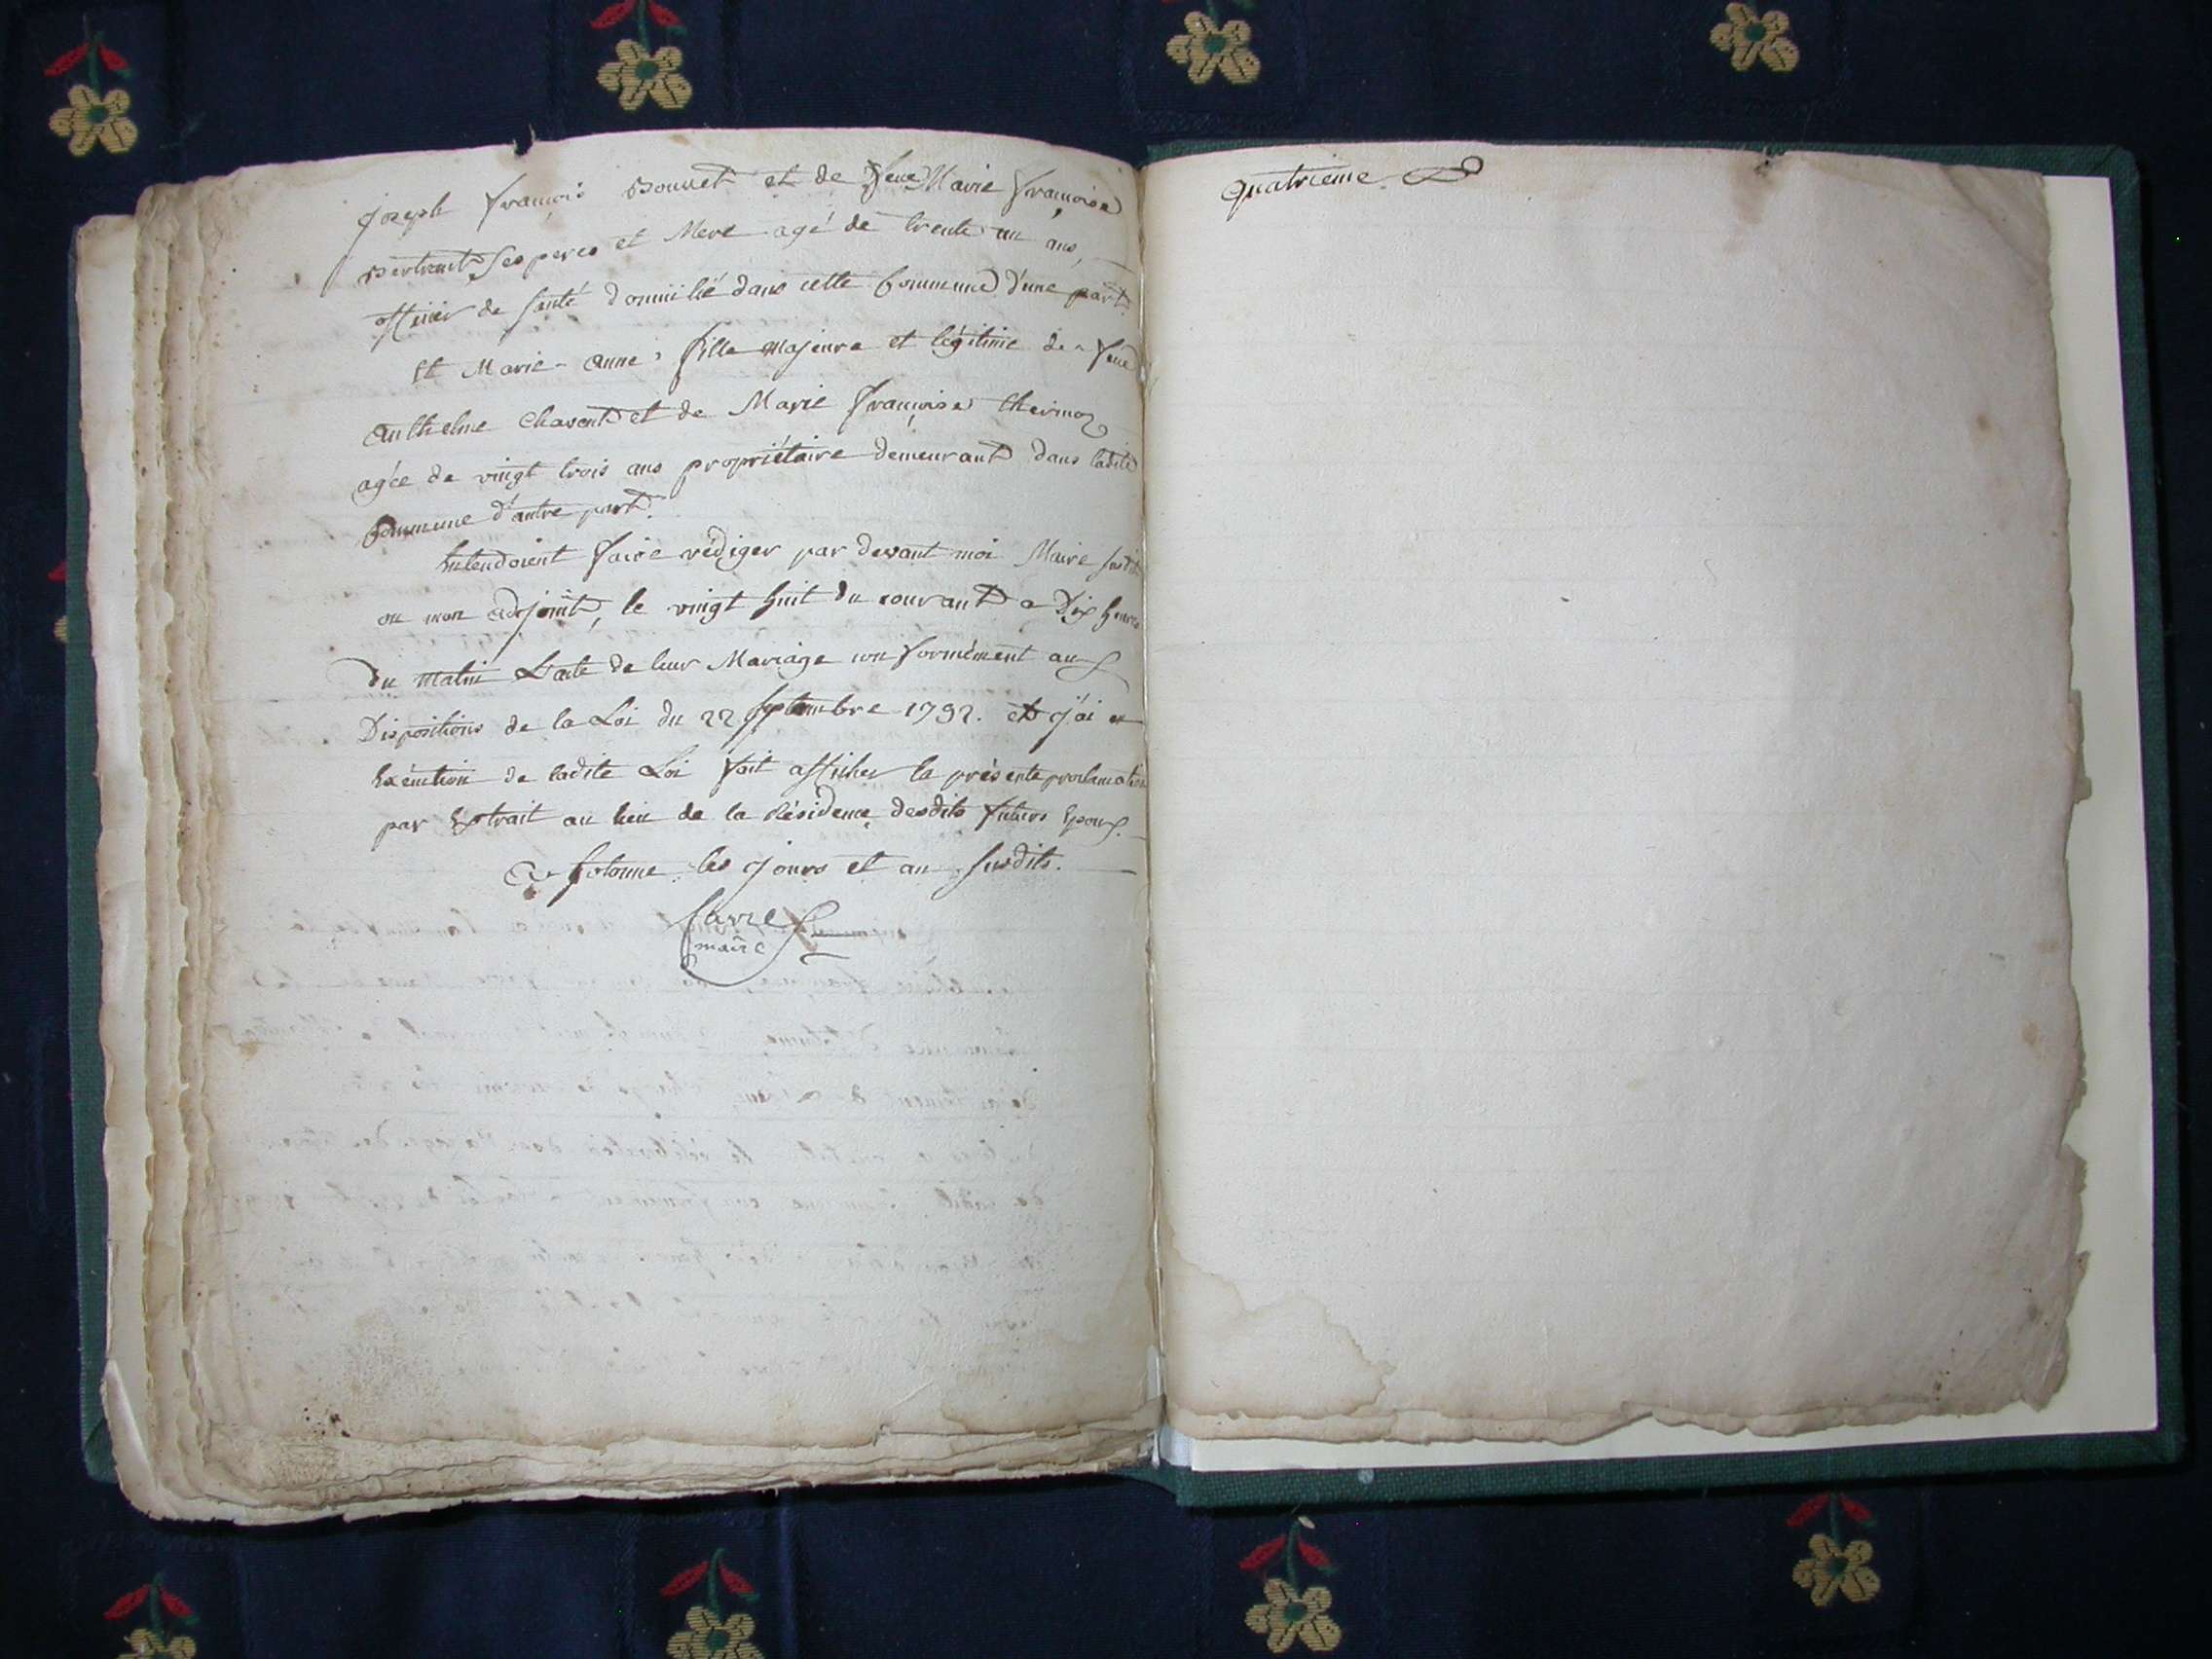 Joseph françois Bonnet et de feue Marie françoise
Bertrand Ses peres et Mere agé de trente un ans,
officier de Santé domicilié dans cette Commune d'une part.
Et Marie-anne, fille Majeure et légitime de feu
anthelme Chavent et de Marie françoise thermoz
agée de vingt trois ans propriétaire demeurant dans ladite
Commune d'autre part.
Entendoient faire rédiger par devant moi Maire susdit
ou mon adjoint, le vingt huit du courant a Dix heures
du matin L'acte de leur Mariage conformément aux
Dispositions de la Loi du 22 Septembre 1792. et j'ai en
Exécution de ladite Loi fait afficher la présente proclamation
par Extrait au lieu de la Résidence desdits futurs Epoux.
a Solonne les jours et an Susdits.
maire
quatrieme.